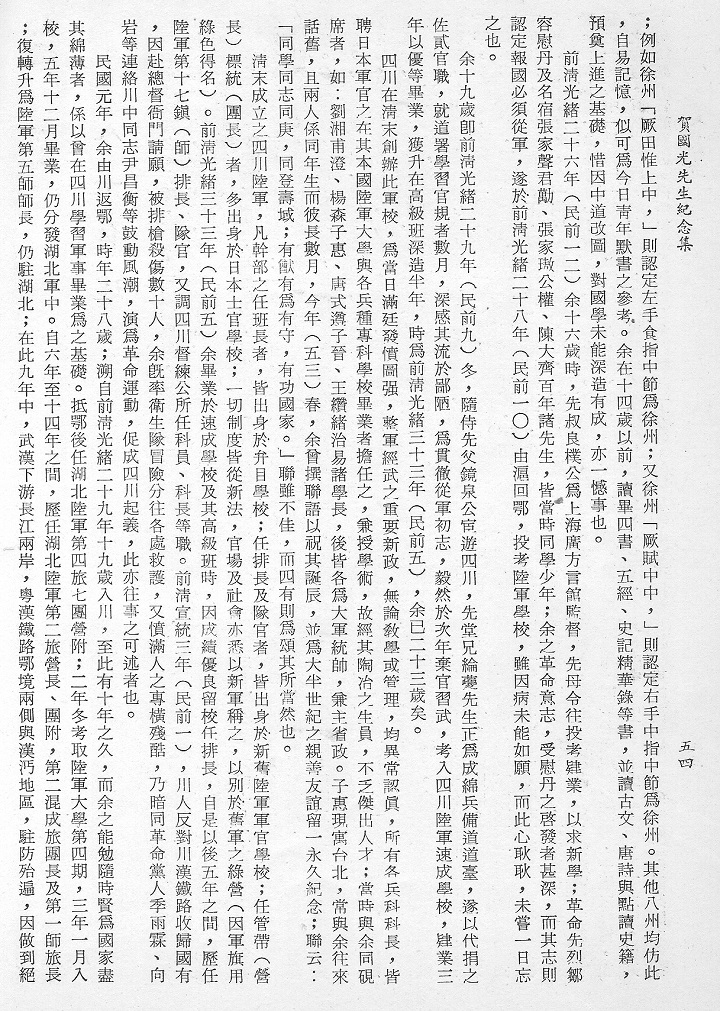 賀國光先生紀念集
五四
；例如徐州「厥田惟上中，」則認定左手食指中節爲徐州；又徐州「厥賦中中，」則認定右手中指中節爲徐州。其他八州均仿此
，自易記憶，似可爲今日靑年默書之參考。余在十四歲以前，讀畢四書、五經、史記精華錄等書，並讀古文、唐詩與點讀史籍，
預奠上進之基礎，惜因中道改圖，對國學未能深造有成，亦一憾事也。
前淸光緒二十六年（民前一二）余十六歲時，先叔良樸公爲上海廣方言館監督，先母令往投考肄業，以求新學；革命先烈鄒
容慰丹及名宿張家聲君勱、張家璈公權、陳大齊百年諸先生，皆當時同學少年；余之革命意志，受慰丹之啓發者甚深，而其志則
認定報國必須從軍，遂於前淸光緒二十八年（民前一〇）由滬回鄂，投考陸軍學校，雖因病未能如願，而此心耿耿，未嘗一日忘
之也。
余十九歲卽前淸光緒二十九年（民前九）冬，隨侍先父鏡泉公宦遊四川，先堂兄綸夔先生正爲成綿兵備道道臺，遂以代捐之
佐貳官職，就道署學習官規者數月，深感其流於鄙陋，爲貫徹從軍初志，毅然於次年棄官習武，考入四川陸軍速成學校，肄業三
年以優等畢業，獲升在高級班深造半年，時爲前淸光緒三十三年（民前五），余已二十三歲矣。
四川在淸末創辦此軍校，爲當日滿廷發憤圖强，整軍經武之重要新政，無論敎學或管理，均異常認眞，所有各兵科科長，皆
聘日本軍官之在其本國陸軍大學與各兵種專科學校畢業者擔任之，兼授學術，故經其陶冶之生員，不乏傑出人才；當時與余同硯
席者，如：劉湘甫澄、楊森子惠、唐式遵子晉、王纘緒治易諸學長，後皆各爲大軍統帥，兼主省政。子惠現寓台北，常與余往來
話舊，且兩人係同年生而彼長數月，今年（五三）春，余曾撰聯語以祝其誕辰，並爲大半世紀之親善友誼留一永久紀念；聯云：
「同學同志同庚，同登壽域；有猷有爲有守，有功國家。」聯雖不佳，而四有則爲頌其所當然也。
淸末成立之四川陸軍，凡幹部之任班長者，皆出身於弁目學校；任排長及隊官者，皆出身於新舊陸軍軍官學校；任管帶（營
長）標統（團長）者，多出身於日本士官學校；一切制度皆從新法，官場及社會亦悉以新軍稱之，以別於舊軍之綠營（因軍旗用
綠色得名）。前淸光緒三十三年（民前五）余畢業於速成學校及其高級班時，因成績優良留校任排長，自是以後五年之間，歷任
陸軍第十七鎭（師）排長、隊官，又調四川督練公所任科員、科長等職。前淸宣統三年（民前一），川人反對川漢鐵路收歸國有
，因赴總督衙門請願，被排槍殺傷數十人，余旣率衞生隊冒險分往各處救護，又憤滿人之專橫殘酷，乃暗同革命黨人季雨霖、向
岩等連絡川中同志尹昌衡等鼓動風潮，演爲革命運動，促成四川起義，此亦往事之可述者也。
民國元年，余由川返鄂，時年二十八歲；溯自前淸光緒二十九年十九歲入川，至此有十年之久，而余之能勉隨時賢爲國家盡
其綿薄者，係以曾在四川學習軍事畢業爲之基礎。抵鄂後任湖北陸軍第四旅七團營附；二年冬考取陸軍大學第四期，三年一月入
校，五年十二月畢業，仍分發湖北軍中。自六年至十四年之間，歷任湖北陸軍第二旅營長、團附，第二混成旅團長及第一師旅長
；復轉升爲陸軍第五師師長，仍駐湖北；在此九年中，武漢下游長江兩岸，粵漢鐵路鄂境兩側與漢沔地區，駐防殆遍，因做到絕